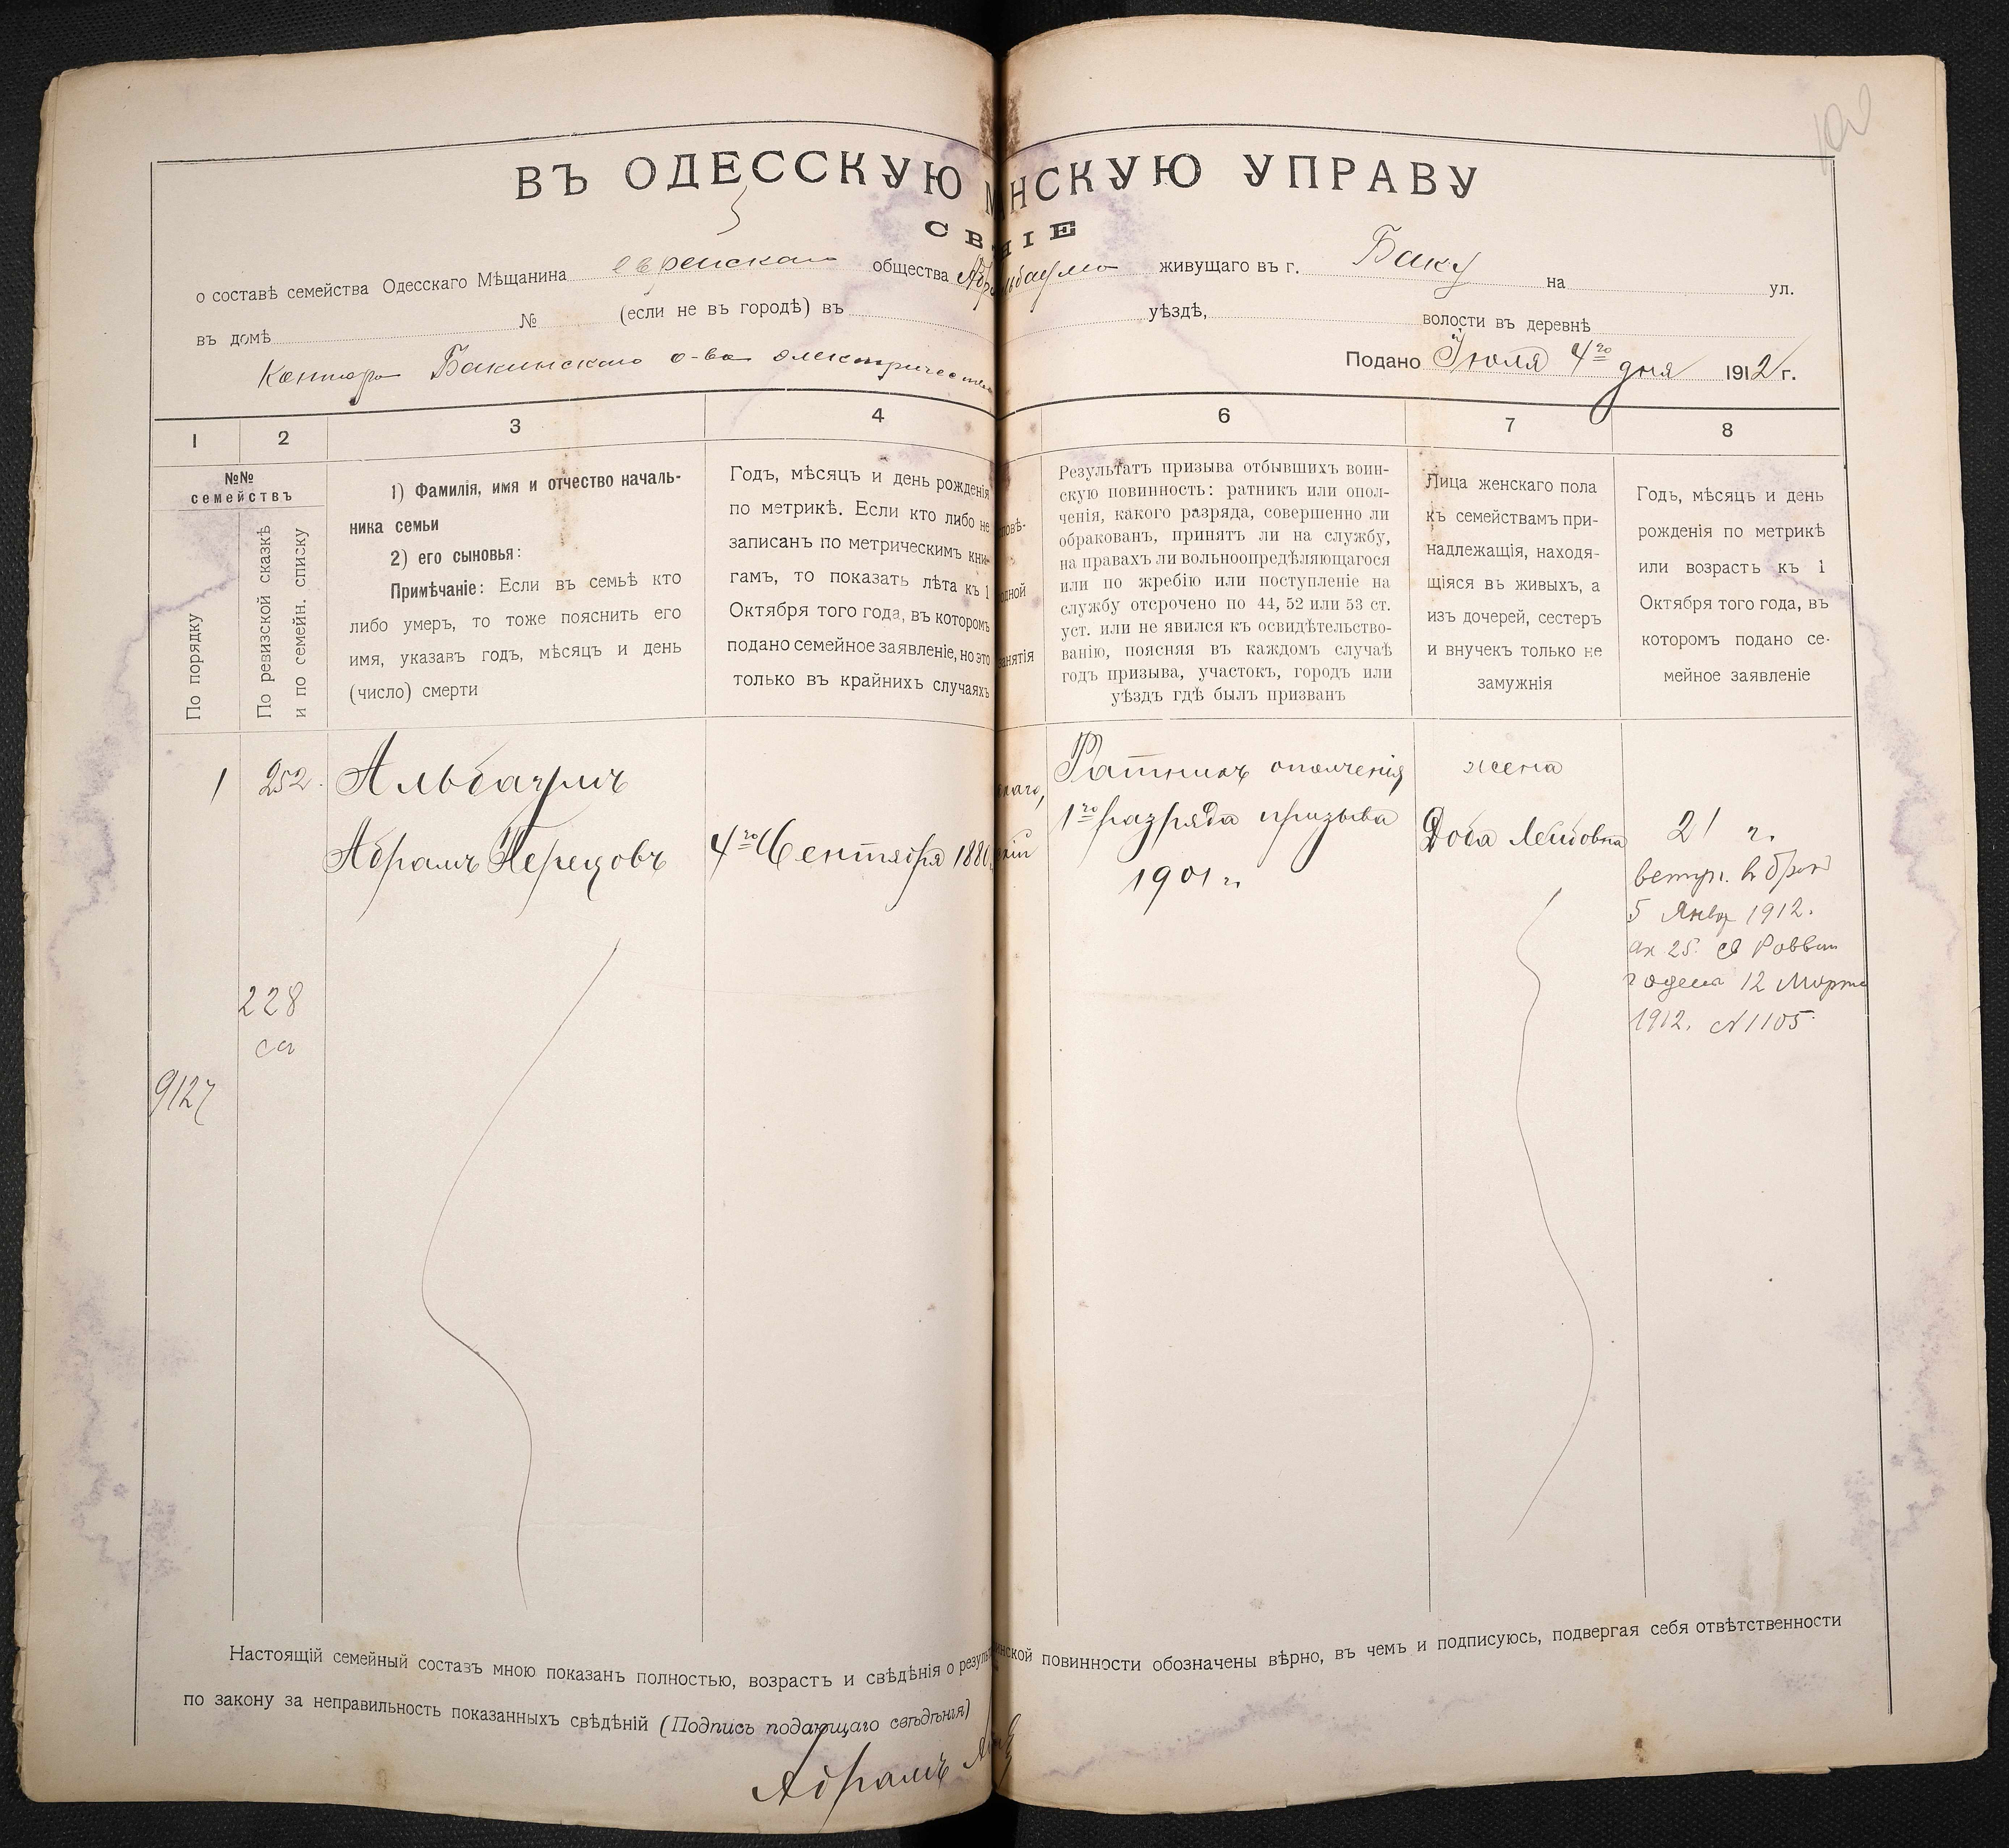 ВЪ ОДЕССКУЮ НСКУЮ УПРАВУ
о составѣ семейства Одесскаго Мѣщанина еврейскаго общества живущаго въ г. Баку на ул.
въ домѣ № (если не въ городѣ) въ уѣздѣ, волости въ деревнѣ
Контора Бакинскаго о-ва Подано Іюля 4го дня 1912 г.
1 2 3 4 6 7 8
№№
семействъ
По порядку
По ревизской сказкѣ
и по семейн. списку
1) Фамилія, имя и отчество началь-
ника семьи
2) его сыновья:
Примѣчаніе: Если въ семьѣ кто
либо умеръ, то тоже пояснить его
имя, указавъ годъ, мѣсяцъ и день
(число) смерти
Годъ, мѣсяцъ и день рожденія
по метрикѣ. Если кто либо не
записанъ по метрическимъ кни-
гамъ, то показать лѣта къ 1
Октября того года, въ которомъ
подано семейное заявленіе, но это
только въ крайнихъ случаяхъ
повѣ-
одной
занятія
Результатъ призыва отбывшихъ воин-
скую повинность: ратникъ или опол-
ченія, какого разряда, совершенно ли
обракованъ, принятъ ли на службу,
на правахъ ли вольноопредѣляющагося
или по жребію или поступленіе на
службу отсрочено по 44, 52 или 53 ст.
уст. или не явился къ освидѣтельство-
ванію, поясняя въ каждомъ случаѣ
годъ призыва, участокъ, городъ или
уѣздъ гдѣ былъ призванъ
Лица женскаго пола
къ семействамъ при-
надлежащія, находя-
щіяся въ живыхъ, а
изъ дочерей, сестеръ
и внучекъ только не
замужнія
Годъ, мѣсяцъ и день
рожденія по метрикѣ
или возрастъ къ 1
Октября того года, въ
которомъ подано се-
мейное заявленіе
1 252. Альбаумъ
Абрамъ Перецовъ
4го Сентября 1880
Ратникъ ополченія
1го разряда призыва
1901 г.
жена
Доба Лейбовна
21 г.
вступ. в брак
5 Янв 1912.
12 Марта
1912. №1105
228
9127
Настоящій семейный составъ мною показанъ полностью, возрастъ и свѣдѣнія о резуль инской повинности обозначены вѣрно, въ чемъ и подписуюсь, подвергая себя отвѣтственности
по закону за неправильность показанныхъ свѣдѣній (Подпись подающаго свѣдѣнія)
Абрамъ